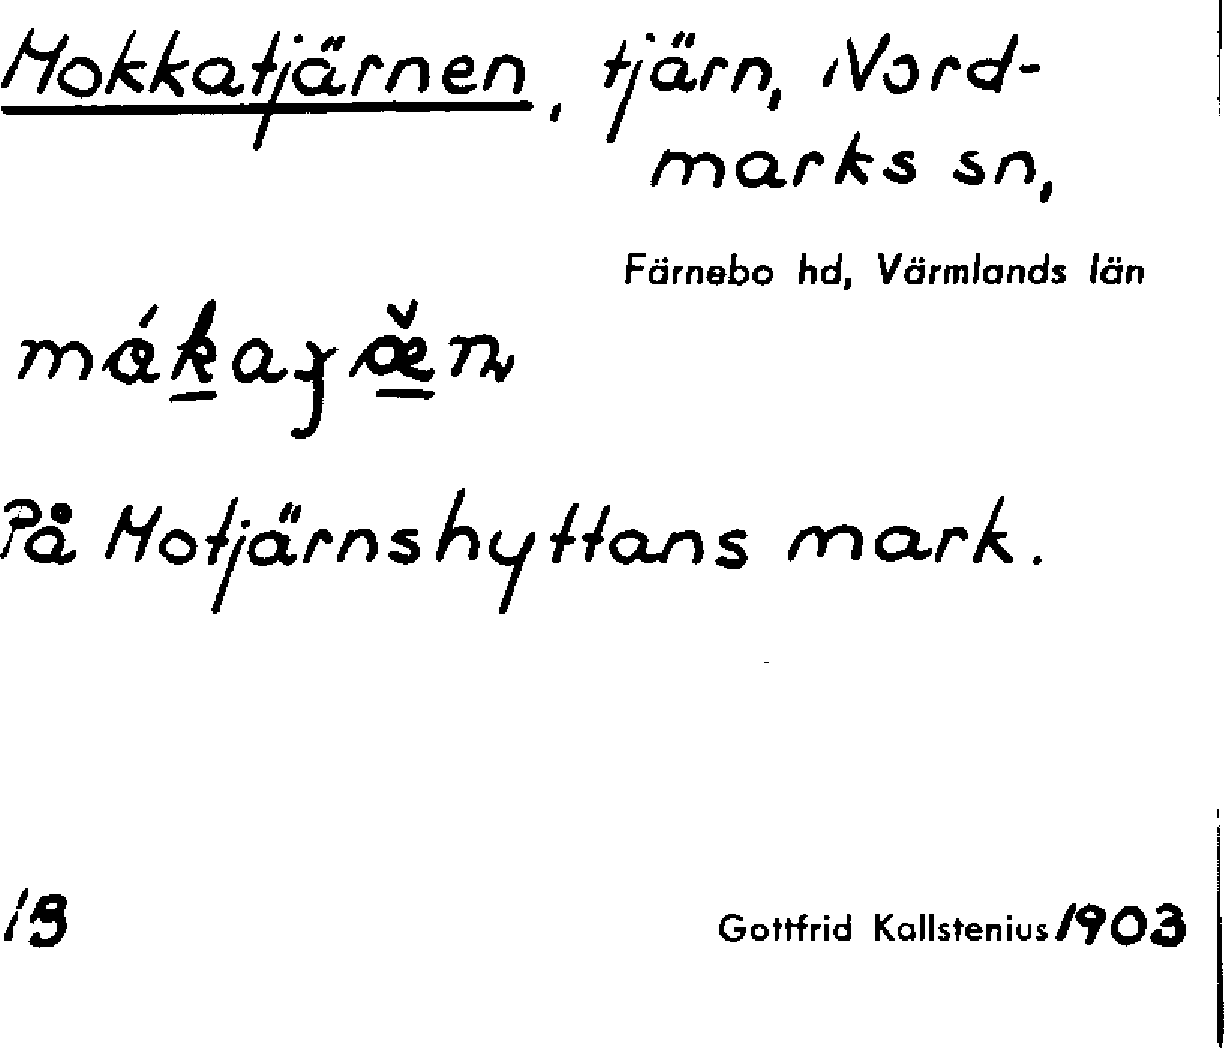 Mokkatjärnen, tjärn, Nord-
marks sn,
Färnebo hd, Värmlands län
På Motjärnshyttans mark.
Gottfrid Kallstenius 1903